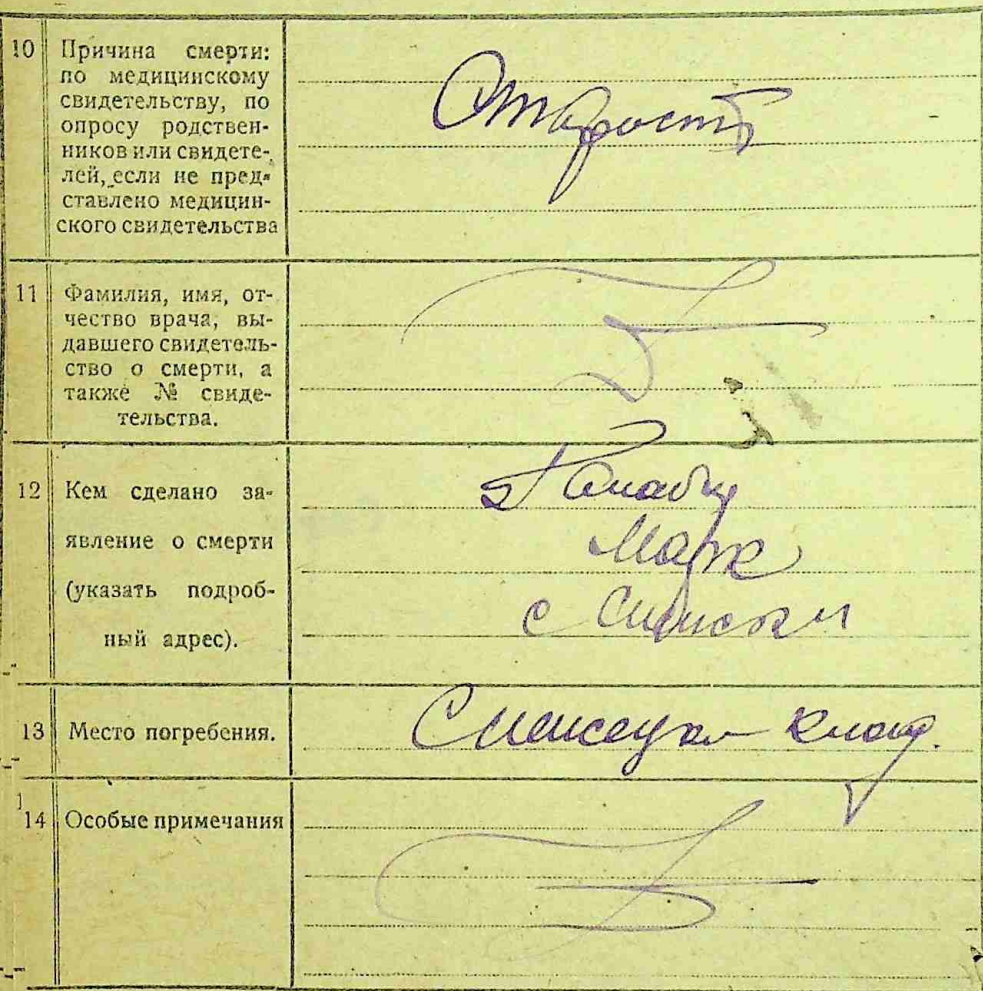 10 Причина смерти:
по медицинскому
свидетельству, по
опросу родствен-
ников или свидете-
лей, если не пред-
ставлено медицин-
ского свидетельства
Старость
11 Фамилия, имя, от-
чество врача, вы-
давшего свидетель-
ство о смерти, а
также № свиде-
тельства.
12 Кем сделано за-
явление о смерти
(указать подроб-
ный адрес).
Марк
с
13 Место погребения.
14 Особые примечания